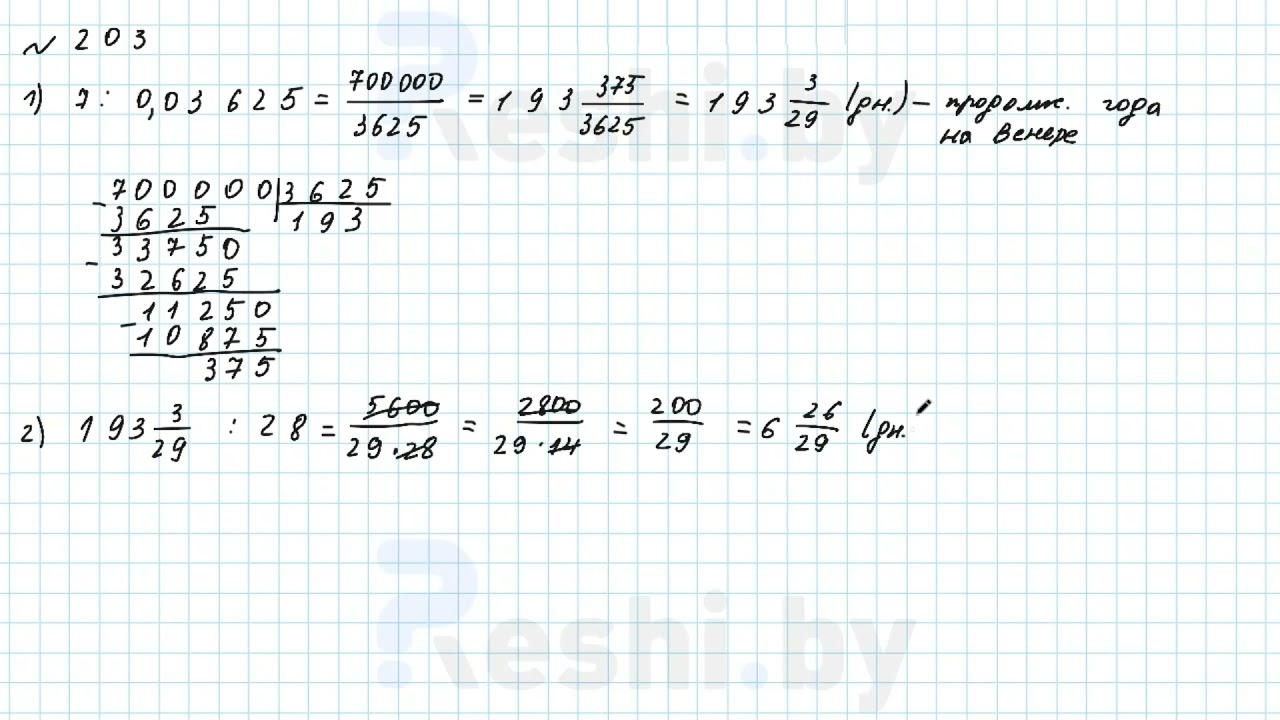 № 203
1) 7 : 0,03625 = 700000/3625 = 193 375/3625 = 193 3/29 (дн.) – продолж. года
на Венере
700000 3625
3625 193
33750
32625
11250
10875
375
2) 193 3/29 : 28 = 5600/29·28 = 2800/29·14 = 200/29 = 6 26/29 (дн.
Reshi.by
Reshi.by